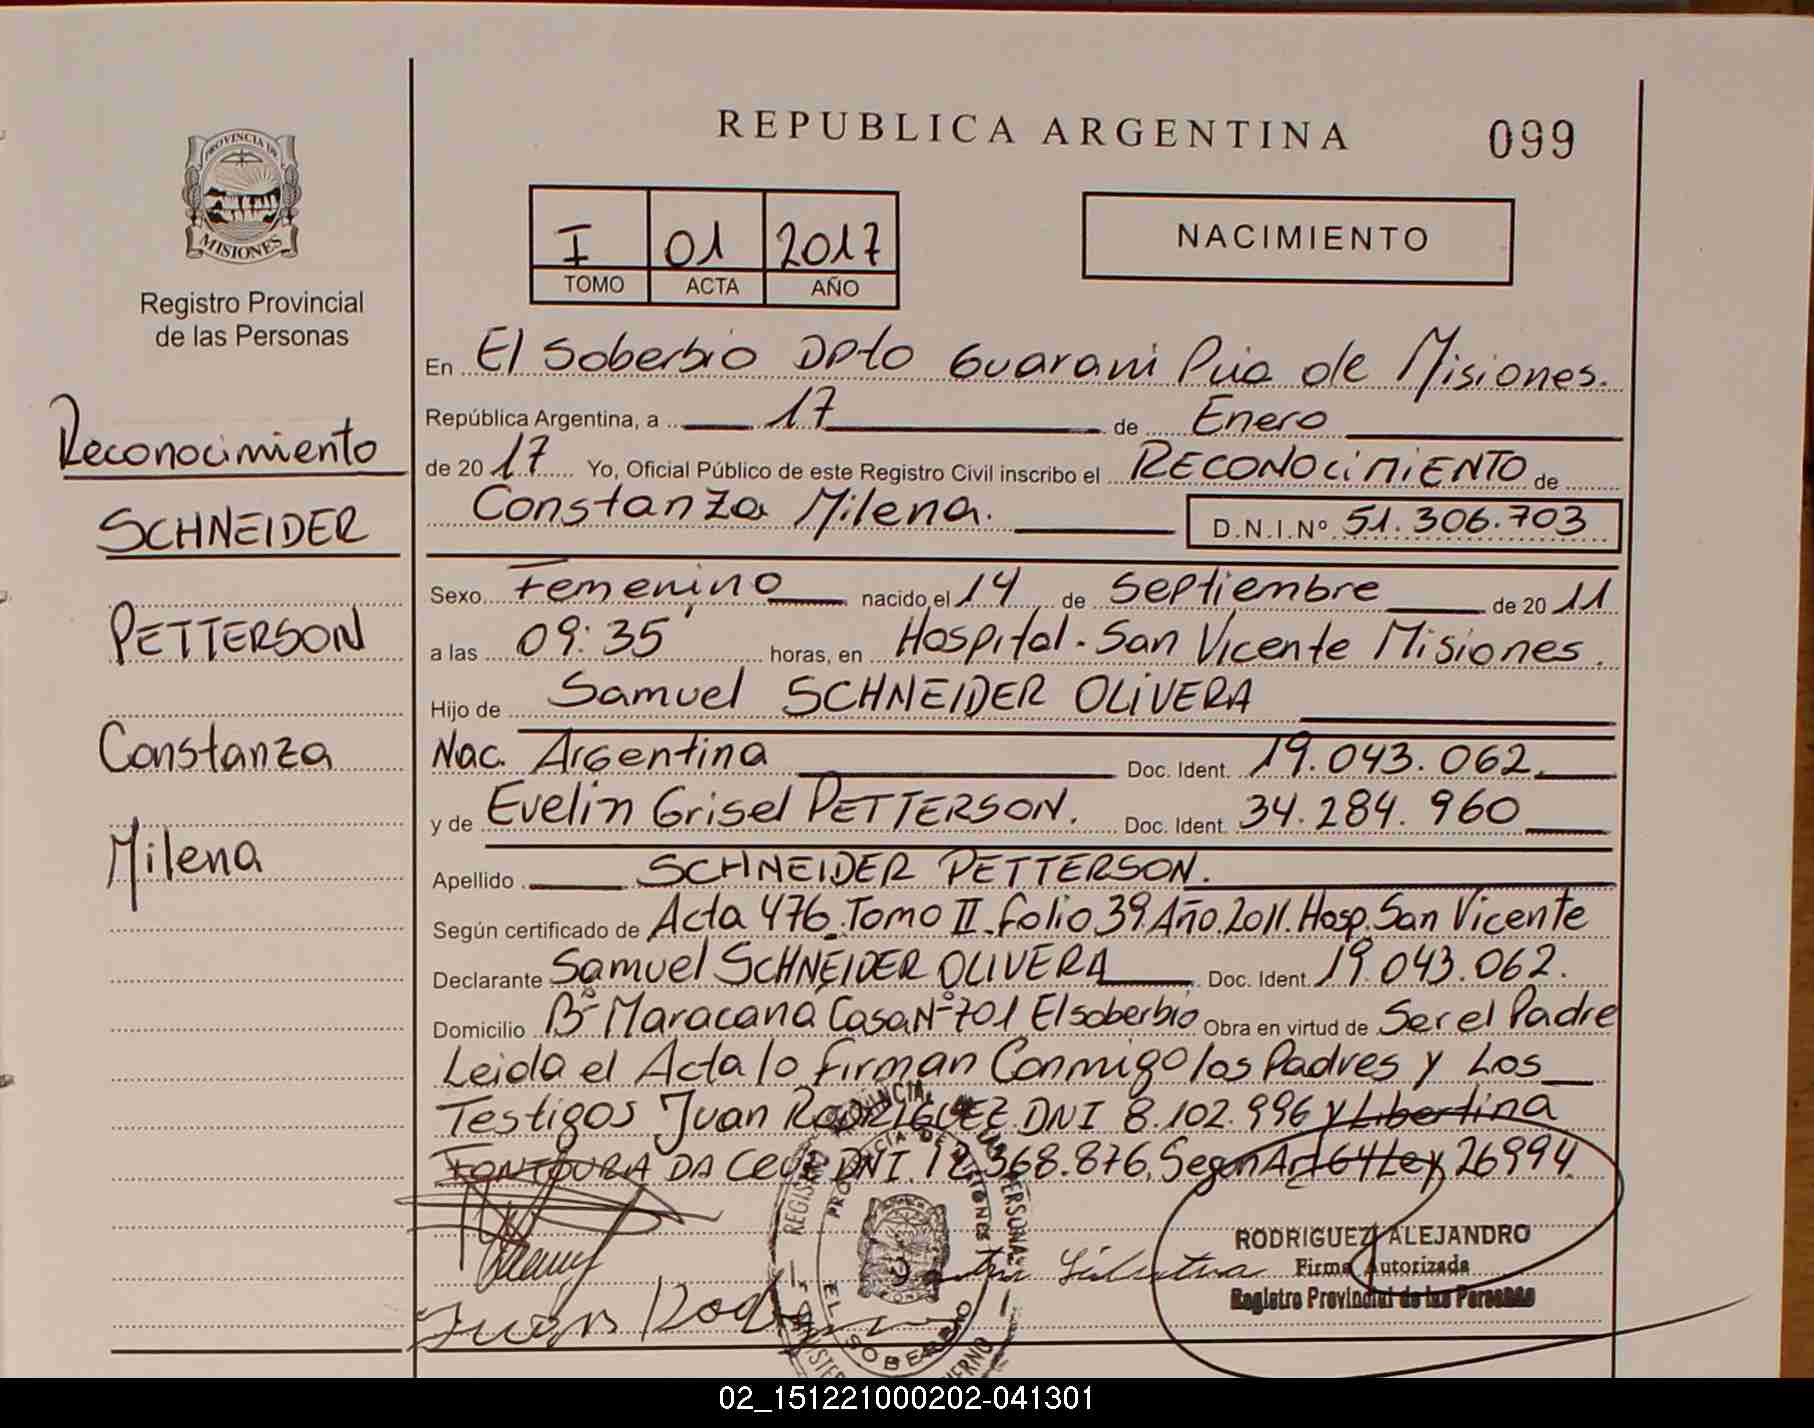 REPUBLICA ARGENTINA
099
PROVINCIA DE
MISIONES
Registro Provincial
de las Personas
I 01 2017
TOMO ACTA AÑO
NACIMIENTO
Reconocimiento
SCHNEIDER
PETTERSON
Constanza
Milena
En El Soberbio Dpto Guarani Pcia de Misiones.
República Argentina, a 17 de Enero
de 2017 Yo, Oficial Público de este Registro Civil inscribo el RECONOCIMIENTO de
Constanza Milena. D.N.I.Nº 51.306.703
Sexo Femenino nacido el 14 de Septiembre de 2011
a las 09:35' horas, en Hospital. San Vicente Misiones.
Hijo de Samuel SCHNEIDER OLIVERA
Nac. Argentina Doc. Ident. 19.043.062.
y de Evelin Grisel PETTERSON. Doc. Ident. 34.284.960
Apellido SCHNEIDER PETTERSON.
Según certificado de Acta 476. Tomo II. folio 39. Año. 2011. Hosp. San Vicente
Declarante Samuel SCHNEIDER OLIVERA Doc. Ident. 19.043.062.
Domicilio Bº Maracaná Casa Nº 701 El soberbio Obra en virtud de Ser el Padre
Leida el Acta lo firman Conmigo los Padres y Los
Testigos Juan RODRIGUEZ DNI 8.102.996 y Libertina
FONTOURA DA CRUZ DNI. 12.368.876, Segun Art 64 Ley 26994.
RODRIGUEZ ALEJANDRO
Firma Autorizada
Registro Provincial de las Personas
Juan Rod
PROVINCIA DE MISIONES
EL SOBERBIO
02_151221000202-041301